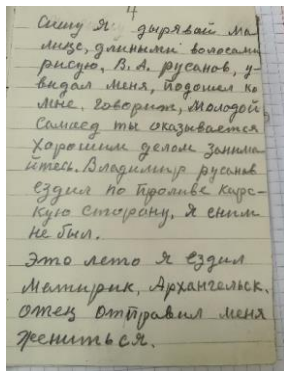 4
Сижу я дырявай ма
лице, длиными волосами
рисую, В. А. русанов, у-
видал меня, подошел ко
мне. говорит, молодой
самоед ты оказывается
хорошим делом занима
йтесь. Владимир русанов
ездил по проливе карс-
кую сторону, я сним
не был.
Это лето я ездил
Матирик, Архангельск,
отец отправил меня
жениться.